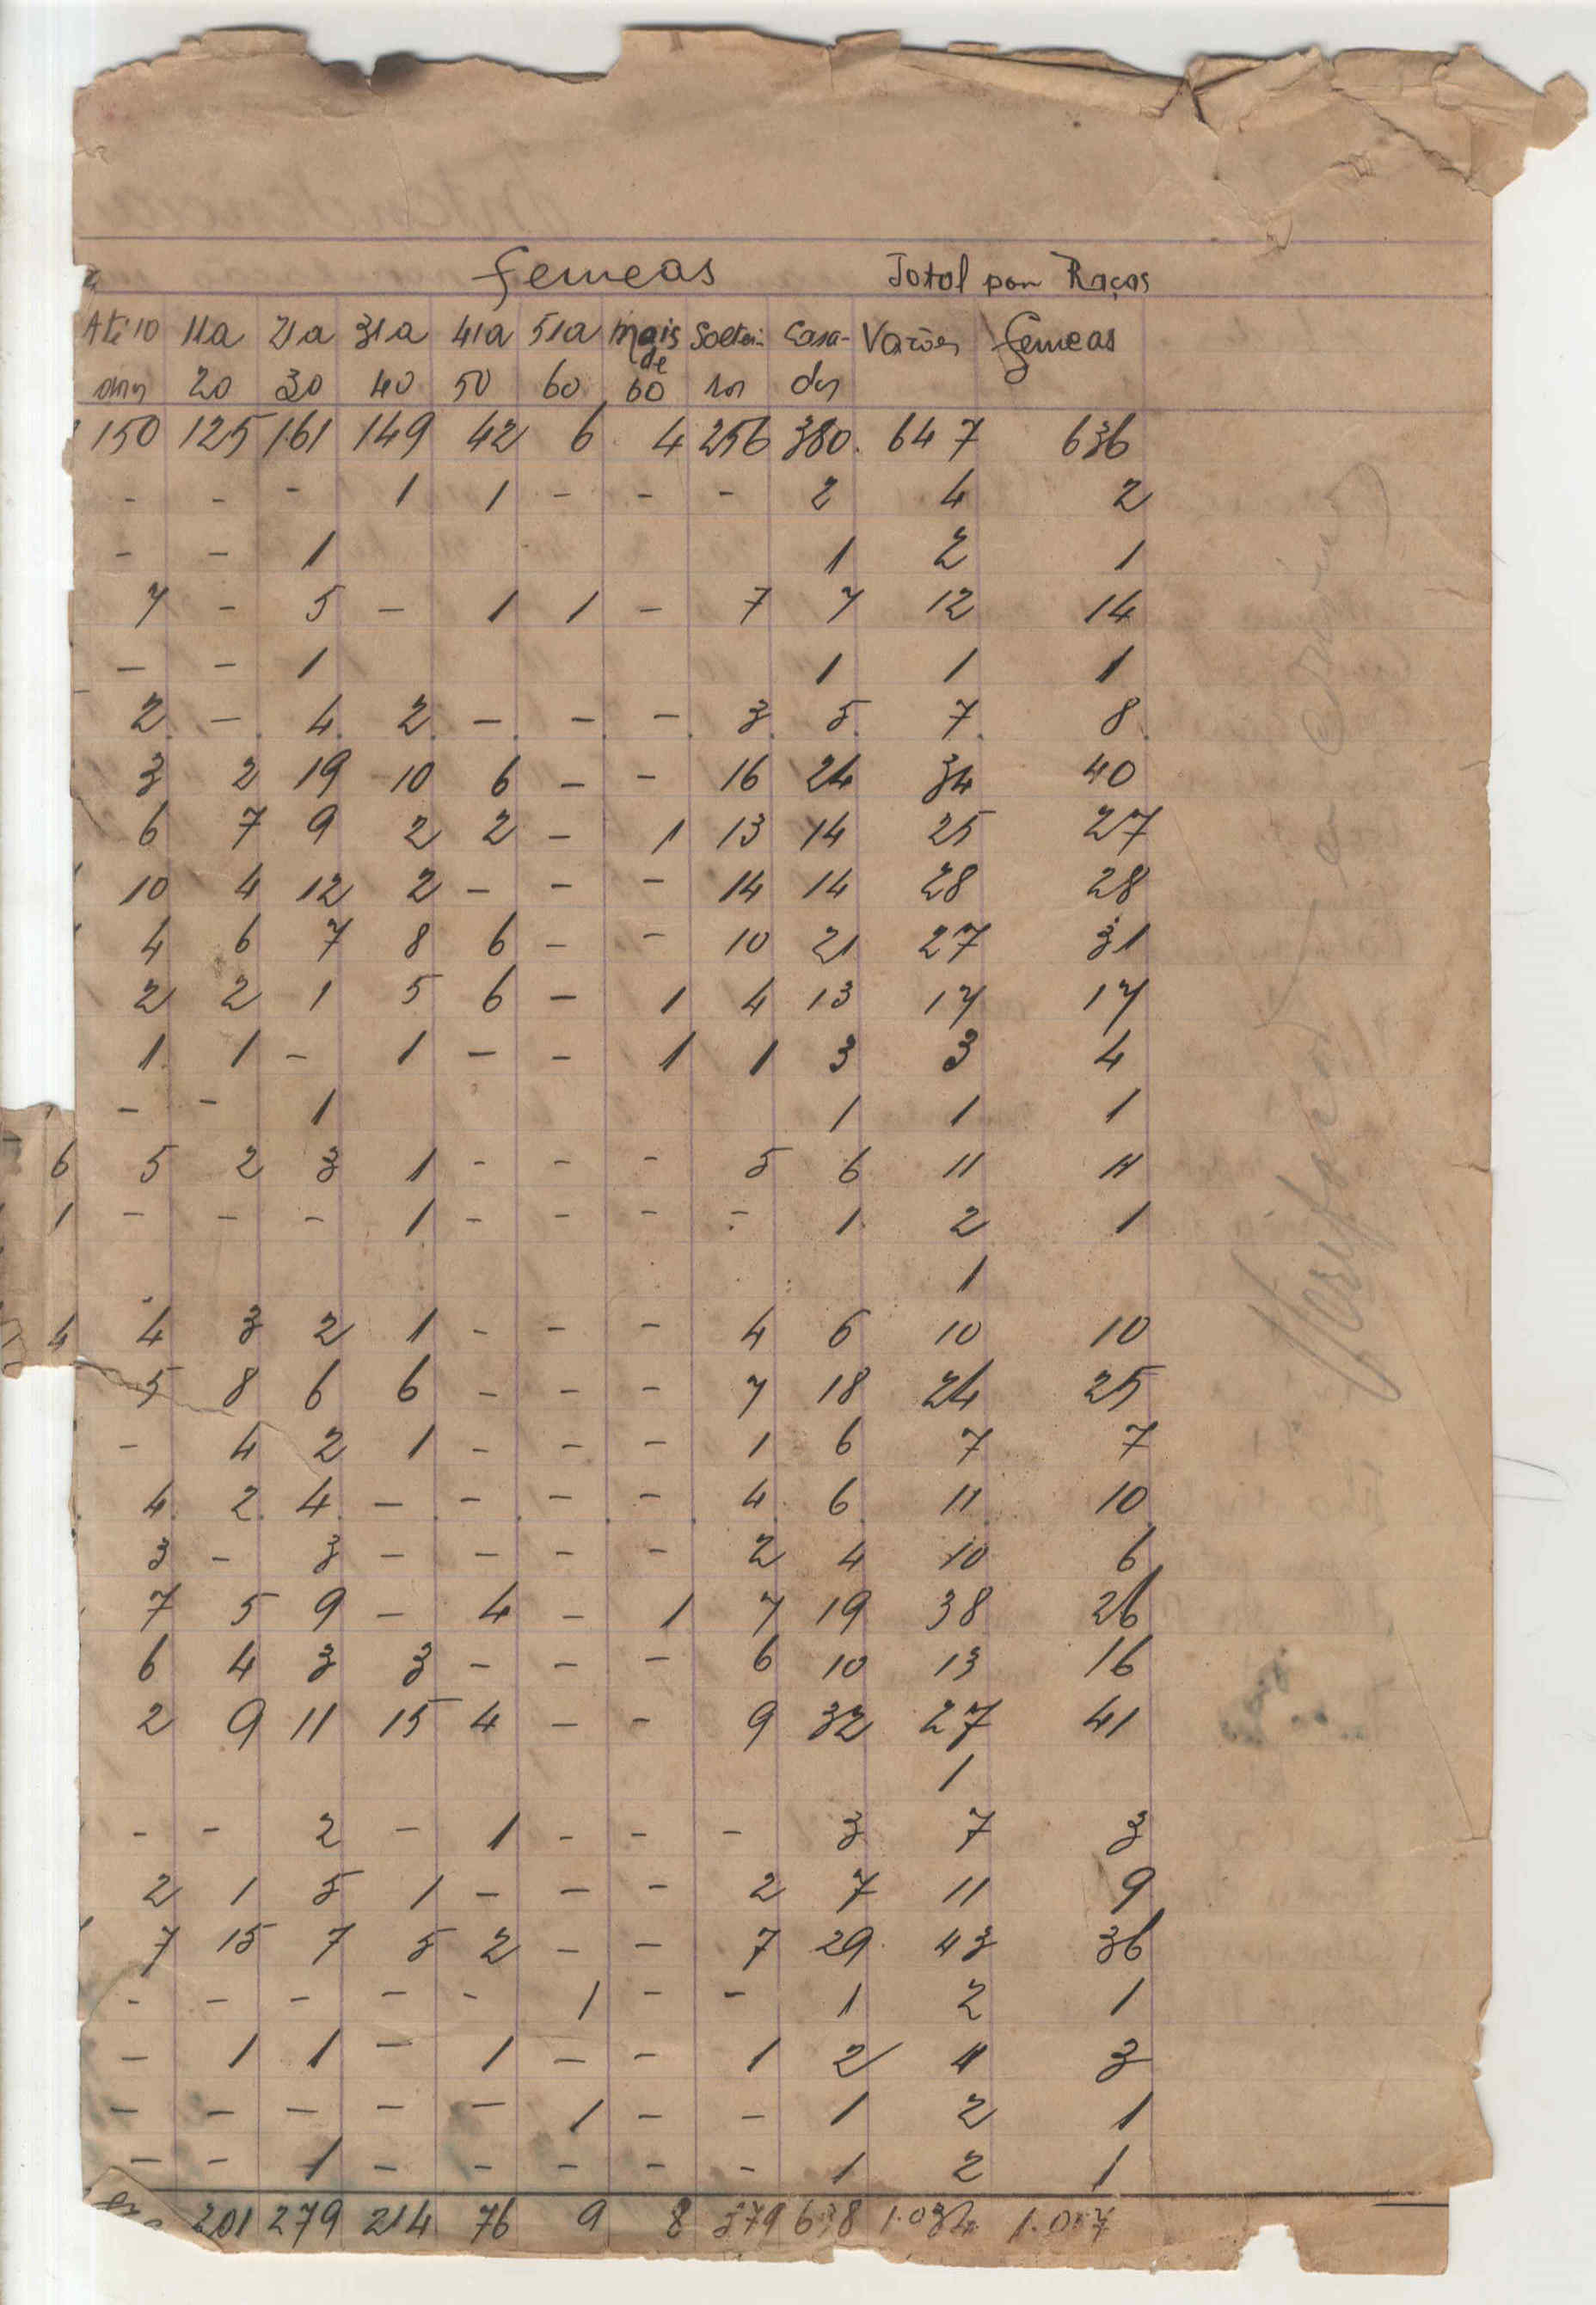 Femeas Total por Raças
Até 10 11a 21a 31a 41a 51a Mais de Soltei- Casa- Varões femeas
anos 20 30 40 50 60 60 ros dos
150 125 161 149 42 6 4 256 380 647 636
- - - 1 1 - - - 2 4 2
- - 1 1 2 1
7 - 5 - 1 1 - 7 7 12 14
- - 1 1 1 1
2 - 4 2 - - - 3 5 7 8
3 2 19 10 6 - - 16 24 34 40
6 7 9 2 2 - 1 13 14 25 27
10 4 12 2 - - - 14 14 28 28
4 6 7 8 6 - - 10 21 27 31
2 2 1 5 6 - 1 4 13 17 17
1 1 - 1 - - 1 1 3 3 4
- - 1 1 1 1
6 5 2 3 1 - - - 5 6 11 11
1 - - - 1 - - - - 1 2 1
1
4 4 3 2 1 - - - 4 6 10 10
5 8 6 6 - - - 7 18 24 25
- 4 2 1 - - - 1 6 7 7
4 2 4 - - - - 4 6 11 10
3 - 3 - - - - 2 4 10 6
7 5 9 - 4 - 1 7 19 38 26
6 4 3 3 - - - 6 10 13 16
2 9 11 15 4 - - 9 32 27 41
1
- - 2 - 1 - - - 3 7 3
2 1 5 1 - - - 2 7 11 9
7 15 7 5 2 - - 7 29 43 36
- - - - - 1 - - 1 2 1
- 1 1 - 1 - - 1 2 4 3
- - - - - 1 - - 1 2 1
- - 1 - - - - - 1 2 1
201 279 214 76 9 8 379 638 1.034 1.017